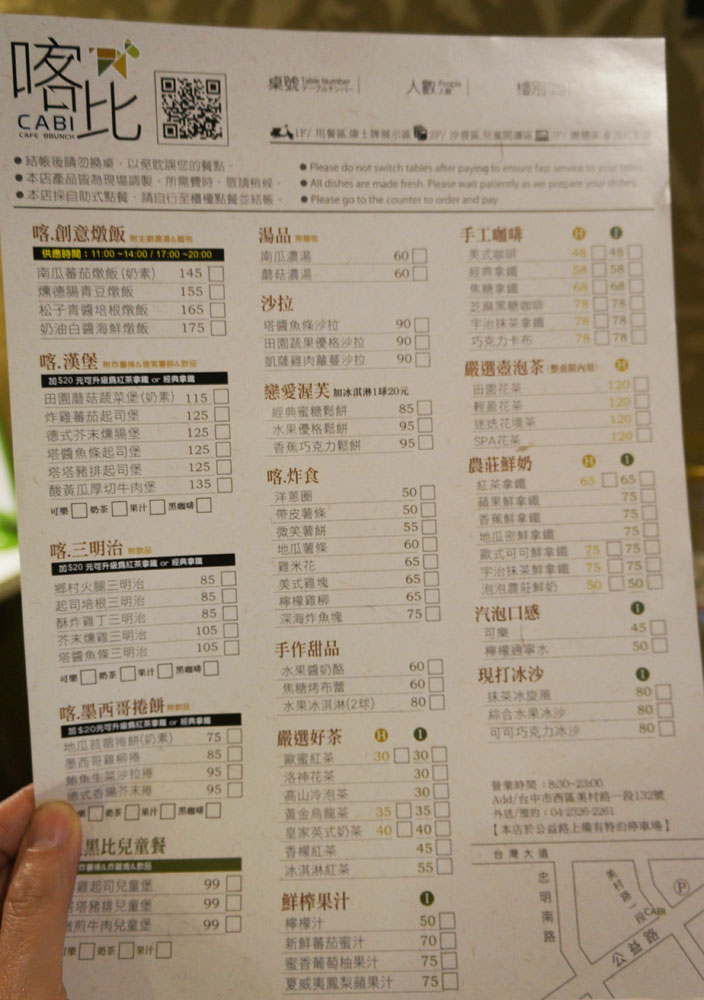 喀比
CABI
CAFE BRUNCH
桌號 Table Number テーブルナンバー
人數 People 人數
樓別
● 結帳後請勿換桌，以免耽誤您的餐點。
● 本店產品皆為現場調製，所需費時，敬請稍候。
● 本店採自助式點餐，請自行至櫃檯點餐並結帳。
● Please do not switch tables after paying to ensure fast service to your
● All dishes are made fresh. Please wait patiently as we prepare your dishes.
● Please go to the counter to order and pay.
喀.創意燉飯
供應時間：11:00 ~14:00 / 17:00 ~20:00
南瓜蕃茄燉飯(奶素) 145
燻德腸青豆燉飯 155
松子青醬培根燉飯 165
奶油白醬海鮮燉飯 175
喀.漢堡
加$20 元可升級爲紅茶拿鐵 or 經典拿鐵
田園蘑菇蔬菜堡(奶素) 115
炸雞蕃茄起司堡 125
德式芥末燻腸堡 125
塔醬魚條起司堡 125
塔塔豬排起司堡 125
酸黃瓜厚切牛肉堡 135
可樂 奶茶 果汁 黑咖啡
喀.三明治 附飲品
加$20 元可升級爲紅茶拿鐵 or 經典拿鐵
鄉村火腿三明治 85
起司培根三明治 85
酥炸雞丁三明治 85
芥末燻雞三明治 105
塔醬魚條三明治 105
可樂 奶茶 果汁 黑咖啡
喀.墨西哥捲餅 附飲品
加$20元可升級爲紅茶拿鐵 or 經典拿鐵
捲餅(奶素) 75
墨西哥雞柳捲 85
鮪魚生菜沙拉捲 95
德式香腸芥末捲 95
樂 奶茶 果汁 黑咖啡
黑比兒童餐
雞起司兒童堡 99
塔豬排兒童堡 99
煎牛肉兒童堡 99
樂 奶茶 果汁
湯品
南瓜濃湯 60
蘑菇濃湯 60
沙拉
塔醬魚條沙拉 90
田園蔬果優格沙拉 90
凱薩雞肉蘿蔓沙拉 90
戀愛渥芙 加冰淇淋1球20元
經典蜜糖鬆餅 85
水果優格鬆餅 95
香蕉巧克力鬆餅 95
喀.炸食
洋蔥圈 50
帶皮薯條 50
微笑薯餅 55
地瓜薯條 60
雞米花 65
美式雞塊 65
檸檬雞柳 65
深海炸魚塊 75
手作甜品
水果醬奶酪 60
焦糖烤布蕾 60
水果冰淇淋(2球) 80
嚴選好茶 H I
歐蜜紅茶 30 30
洛神花茶 30
高山冷泡茶 30
黃金烏龍茶 35 35
皇家英式奶茶 40 40
香檬紅茶 45
冰淇淋紅茶 55
鮮榨果汁 I
檸檬汁 50
新鮮蕃茄蜜汁 70
蜜香葡萄柚果汁 75
夏威夷鳳梨蘋果汁 75
手工咖啡 H I
美式咖啡 48 48
經典拿鐵 58 58
焦糖拿鐵 68 68
芝麻黑糖咖啡 78 78
宇治抹茶拿鐵 78 78
巧克力卡布 78 78
嚴選壺泡茶 H
田園花茶 120
輕盈花茶 120
迷迭花境茶 120
SPA花茶 120
農莊鮮奶 H I
紅茶拿鐵 65 65
蘋果鮮拿鐵 75
香蕉鮮拿鐵 75
地瓜密鮮拿鐵 75
歐式可可鮮拿鐵 75 75
宇治抹茶鮮拿鐵 75 75
泡泡農莊鮮奶 50 50
汽泡口感 I
可樂 45
檸檬通寧水 50
現打冰沙 I
抹茶冰旋風 80
綜合水果冰沙 80
可可巧克力冰沙 80
營業時間：8:30~23:00
Add/台中市西區美村路一段132號
外送/預約：04-2326-2261
【本店於公益路上備有特約停車場】
台灣大道
忠明南路
美村路一段
CABI
公益路
P